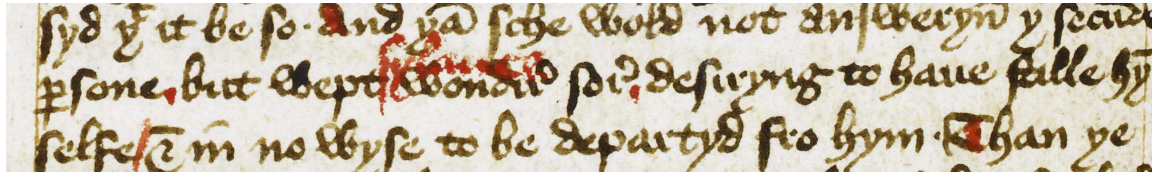 syd yͭ it be so. And yā sche wold not answeryn̄ y secūde
ꝑsone, but wept wondir sor̉, desiryng to haue stille hȳ
selfe / & in no wyse to be departyd fro hym. Than ye